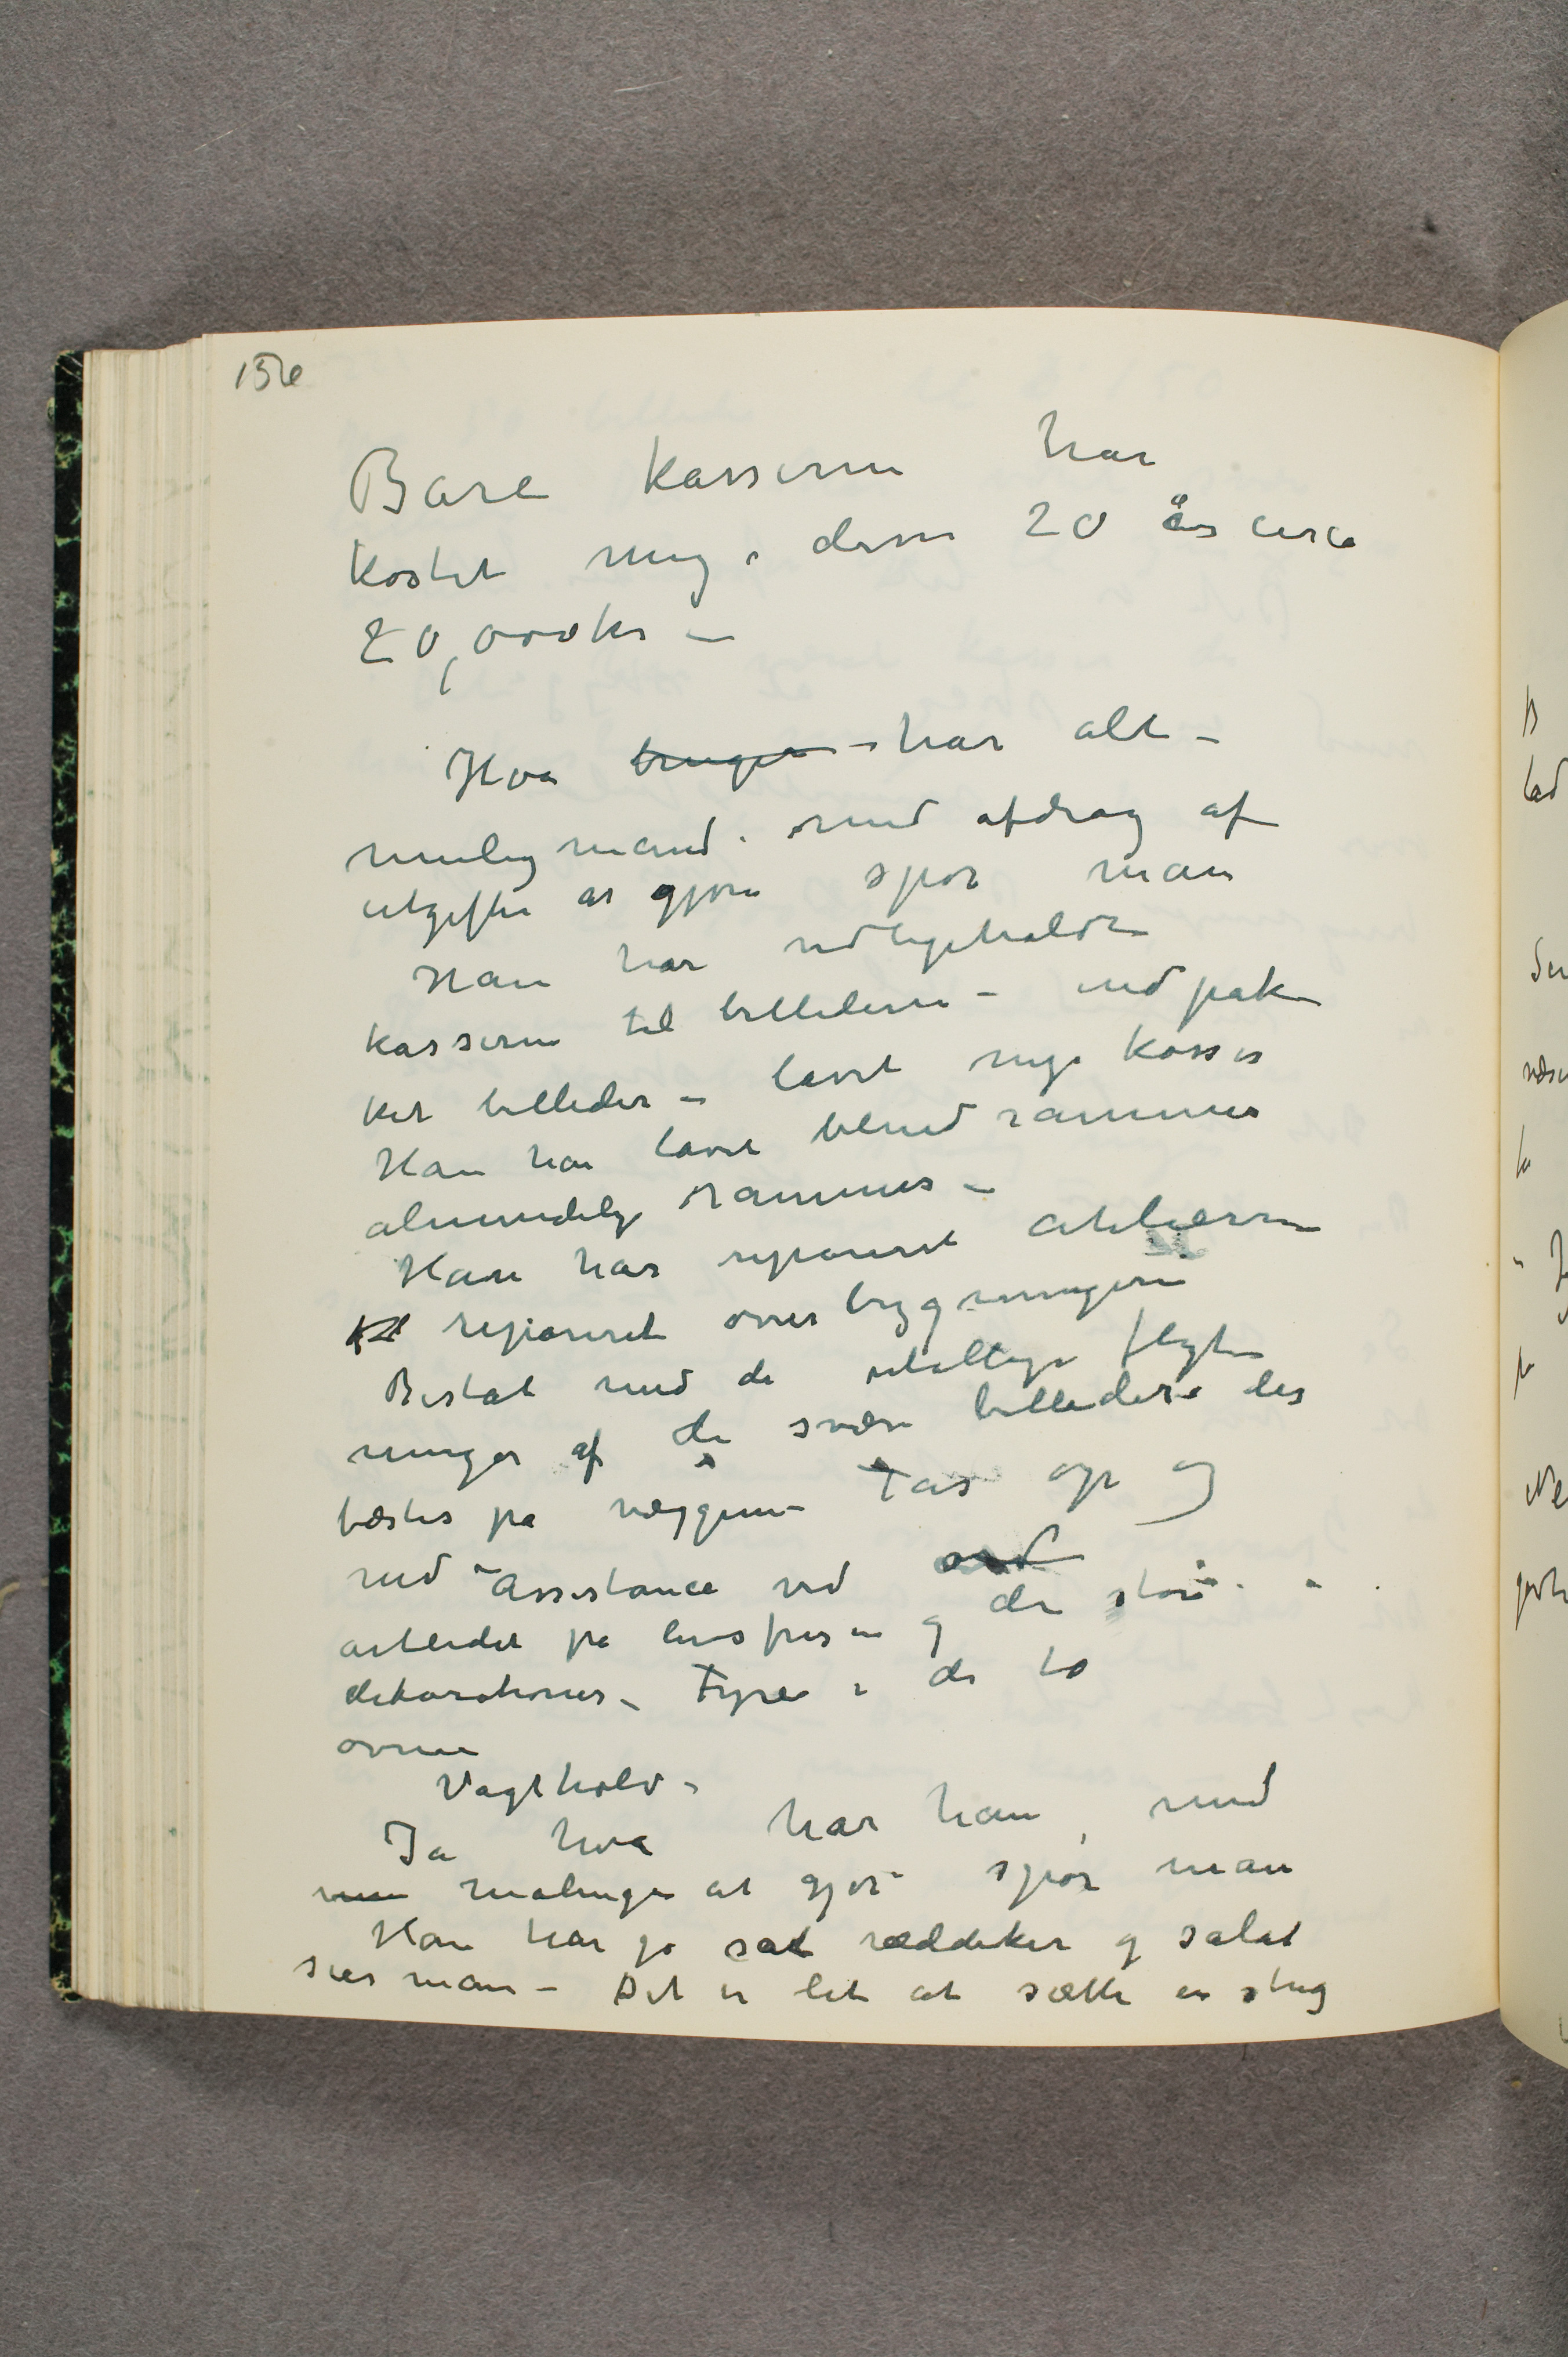 156
Bare kasserne har
kostet mig i disse 20 år circa
20,000 kr –
Hva bruges – har alt –
muligmand i med afdrag af
utgifter at gjøre spør man
Han har vedligeholdt
kasserne til billederne – indpak
ket billeder – lavet nye kasser
Han har lavet blindrammer
almindelige rammer –
Han har reparert atelierne
reparert overbygningerne
Biståt med de utallige flyt
ninger af de svære billeder
fæstes på væggene Tas op og
ned – Assistance ved
arbeidet på livsfrisen og de store
dekorationer – Fyre i de to
ovne
Vagthold –
Ja hva har han med
malingen at gjøre spør man
Han har jo sat ræddiker og salat
sier man – Det er let at sætte en